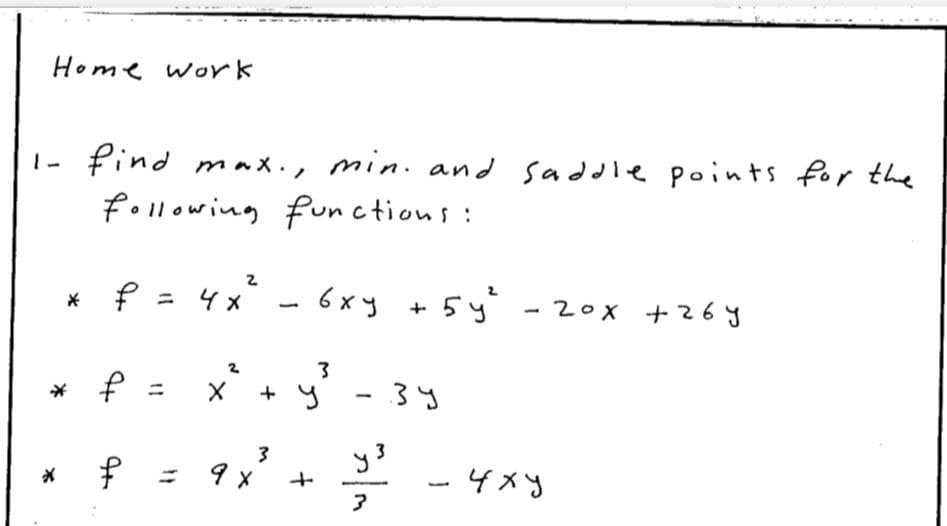 Home work
1- find max., min. and saddle points for the
following functions:
* f = 4x² - 6xy + 5y² - 20x + 26y
* f = x² + y³ - 3y
* f = 9x³ + y³/3 - 4xy